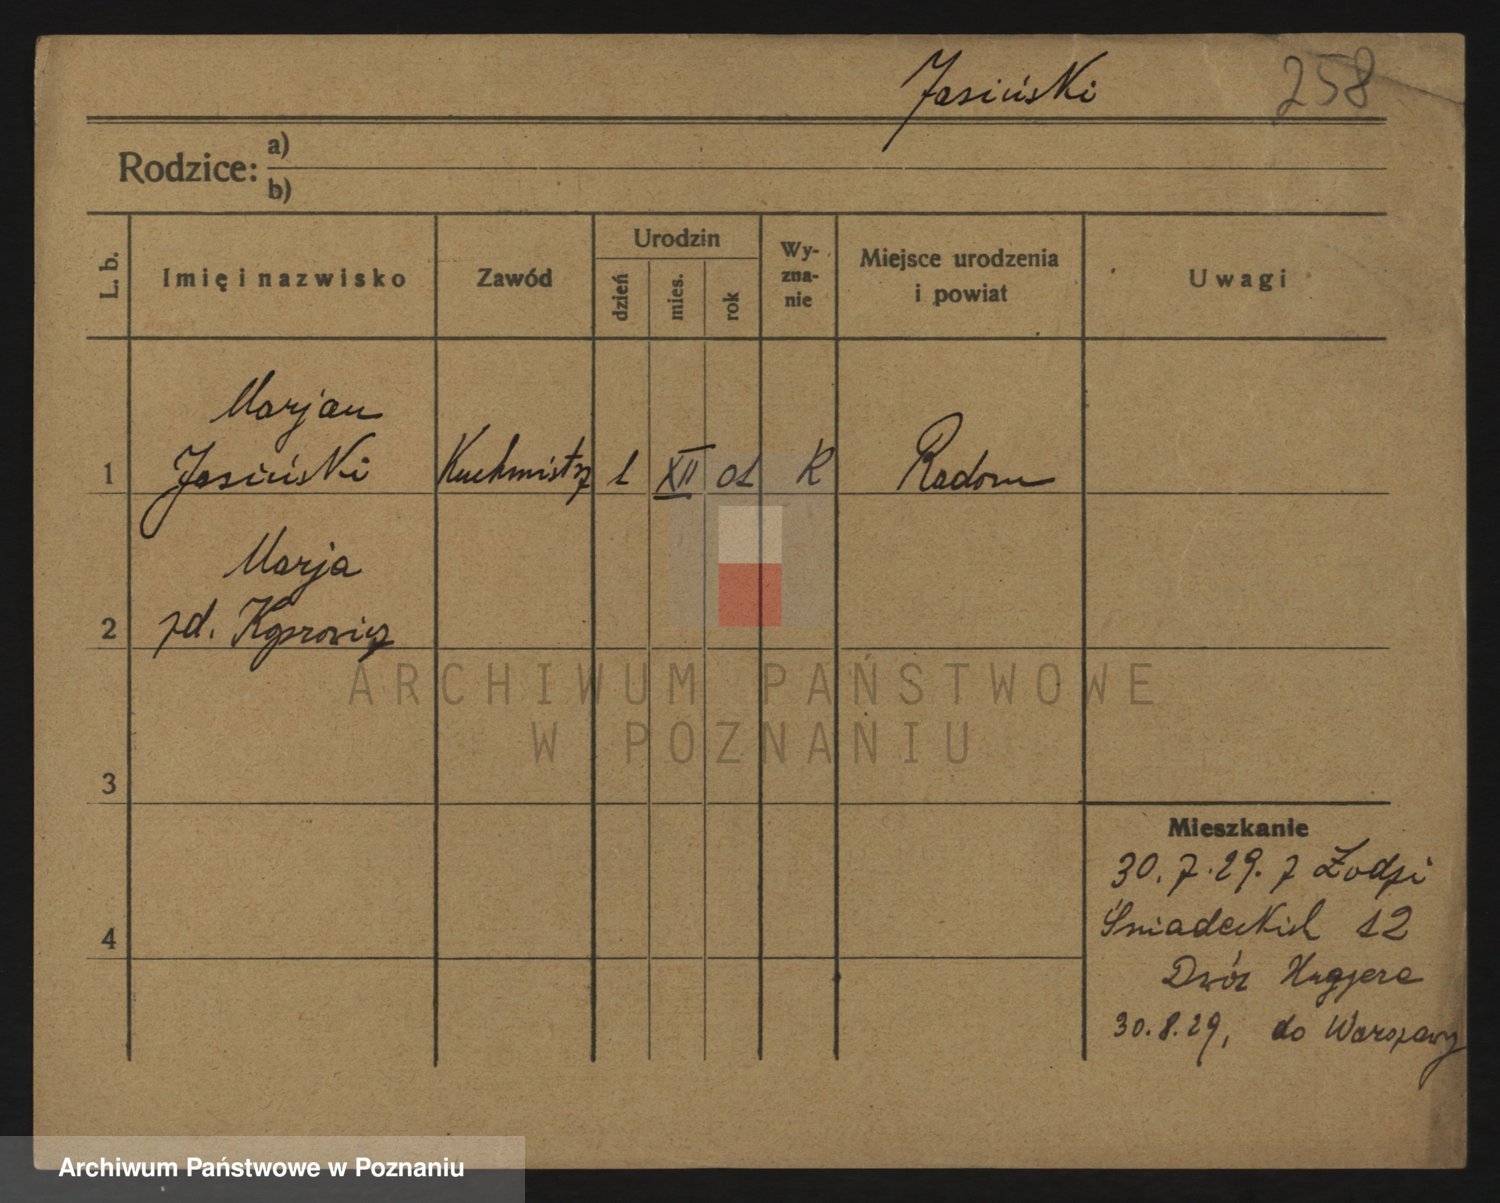 Jasiński 258
Rodzice: a)
b)
L. b.
Imię i nazwisko
Zawód
Urodzin
dzień
mies.
rok
Wy-
zna-
nie
Miejsce urodzenia
i powiat
Uwagi
Marjan
1 Jasiński Kuchmistrz 1 XII 01 R Radom
Marja
2 zd.
3
Mieszkanie
30.7.29. z Łodzi
4 Śniadeckich 12
Dwór
30.8.29, do Warszawy
ARCHIWUM PAŃSTWOWE
W POZNANIU
Archiwum Państwowe w Poznaniu